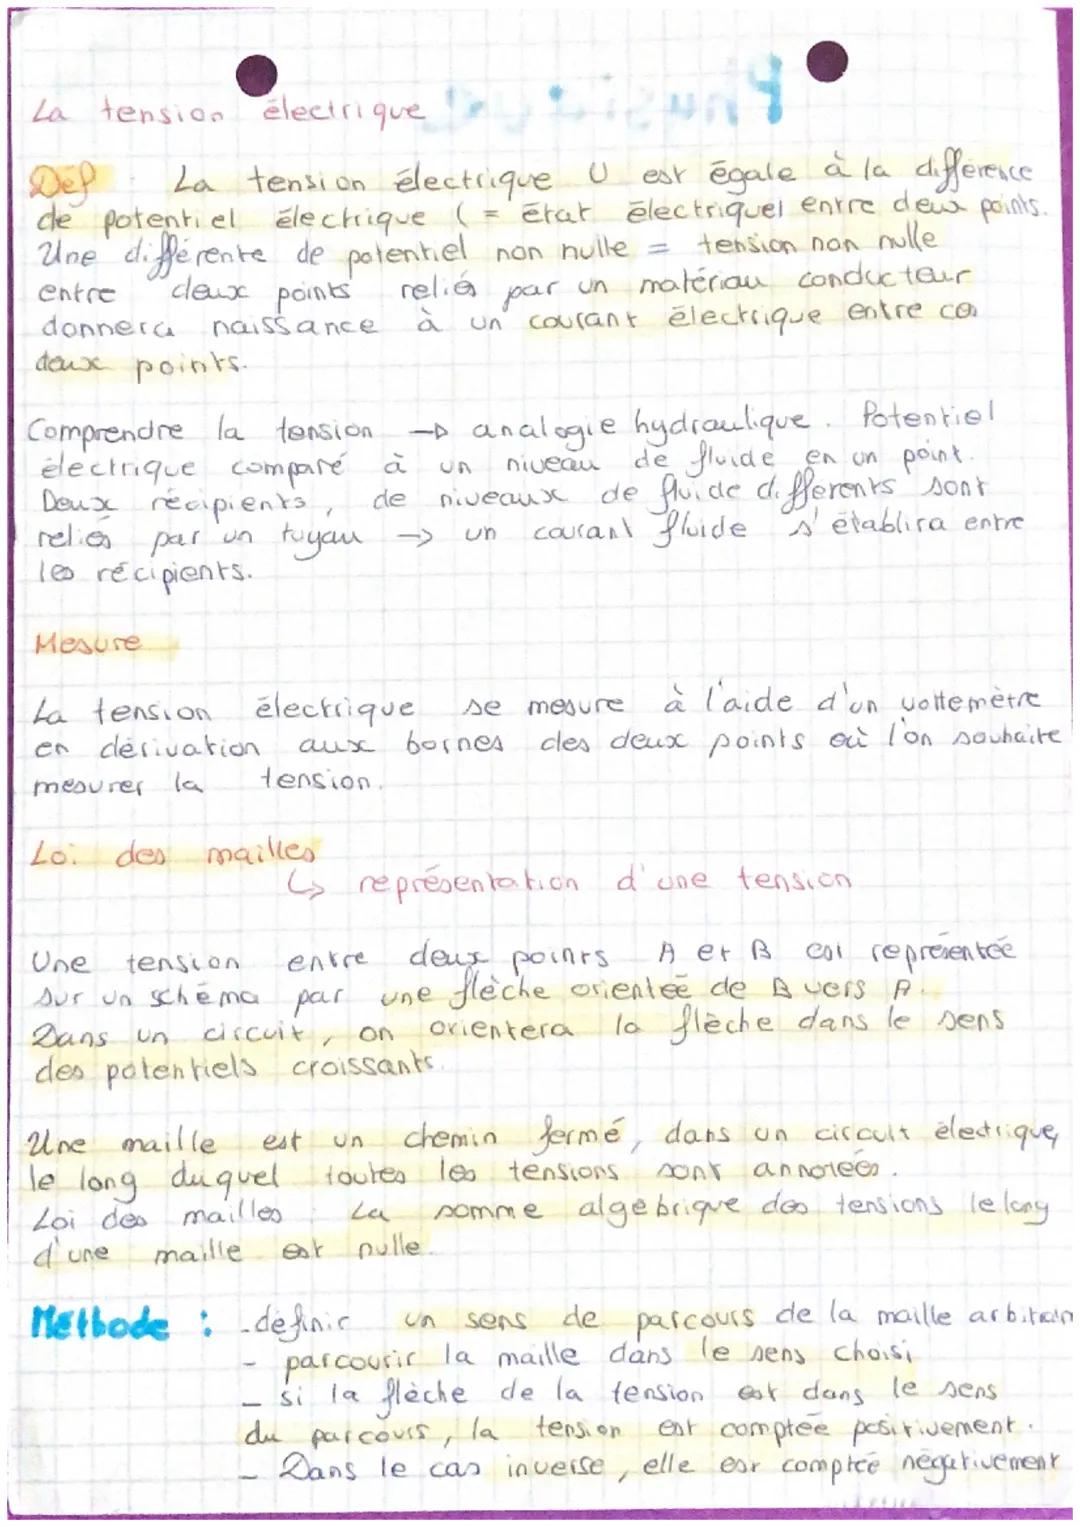 La tension électrique
Déf : La tension électrique U est égale à la différence
de potentiel électrique ( = état électrique) entre deux points.
Une différente de potentiel non nulle = tension non nulle
entre deux points reliés par un matériau conducteur
donnera naissance à un courant électrique entre ces
deux points.
Comprendre la tension → analogie hydraulique. Potentiel
électrique comparé à un niveau de fluide en un point.
Deux récipients, de niveaux de fluide différents sont
reliés par un tuyau → un courant fluide s'établira entre
les récipients.
Mesure
La tension électrique se mesure à l'aide d'un voltemètre
en dérivation aux bornes des deux points où l'on souhaite
mesurer la tension.
Loi des mailles
↳ représentation d'une tension
Une tension entre deux points A et B est représentée
sur un schéma par une flèche orientée de B vers A.
Dans un circuit, on orientera la flèche dans le sens
des potentiels croissants.
Une maille est un chemin fermé, dans un circuit électrique,
le long duquel toutes les tensions sont annotées.
Loi des mailles : La somme algébrique des tensions le long
d'une maille est nulle.
Méthode : - définir un sens de parcours de la maille
- parcourir la maille dans le sens choisi
- si la flèche de la tension est dans le sens
du parcours, la tension est comptée positivement.
- Dans le cas inverse, elle est comptée négativement